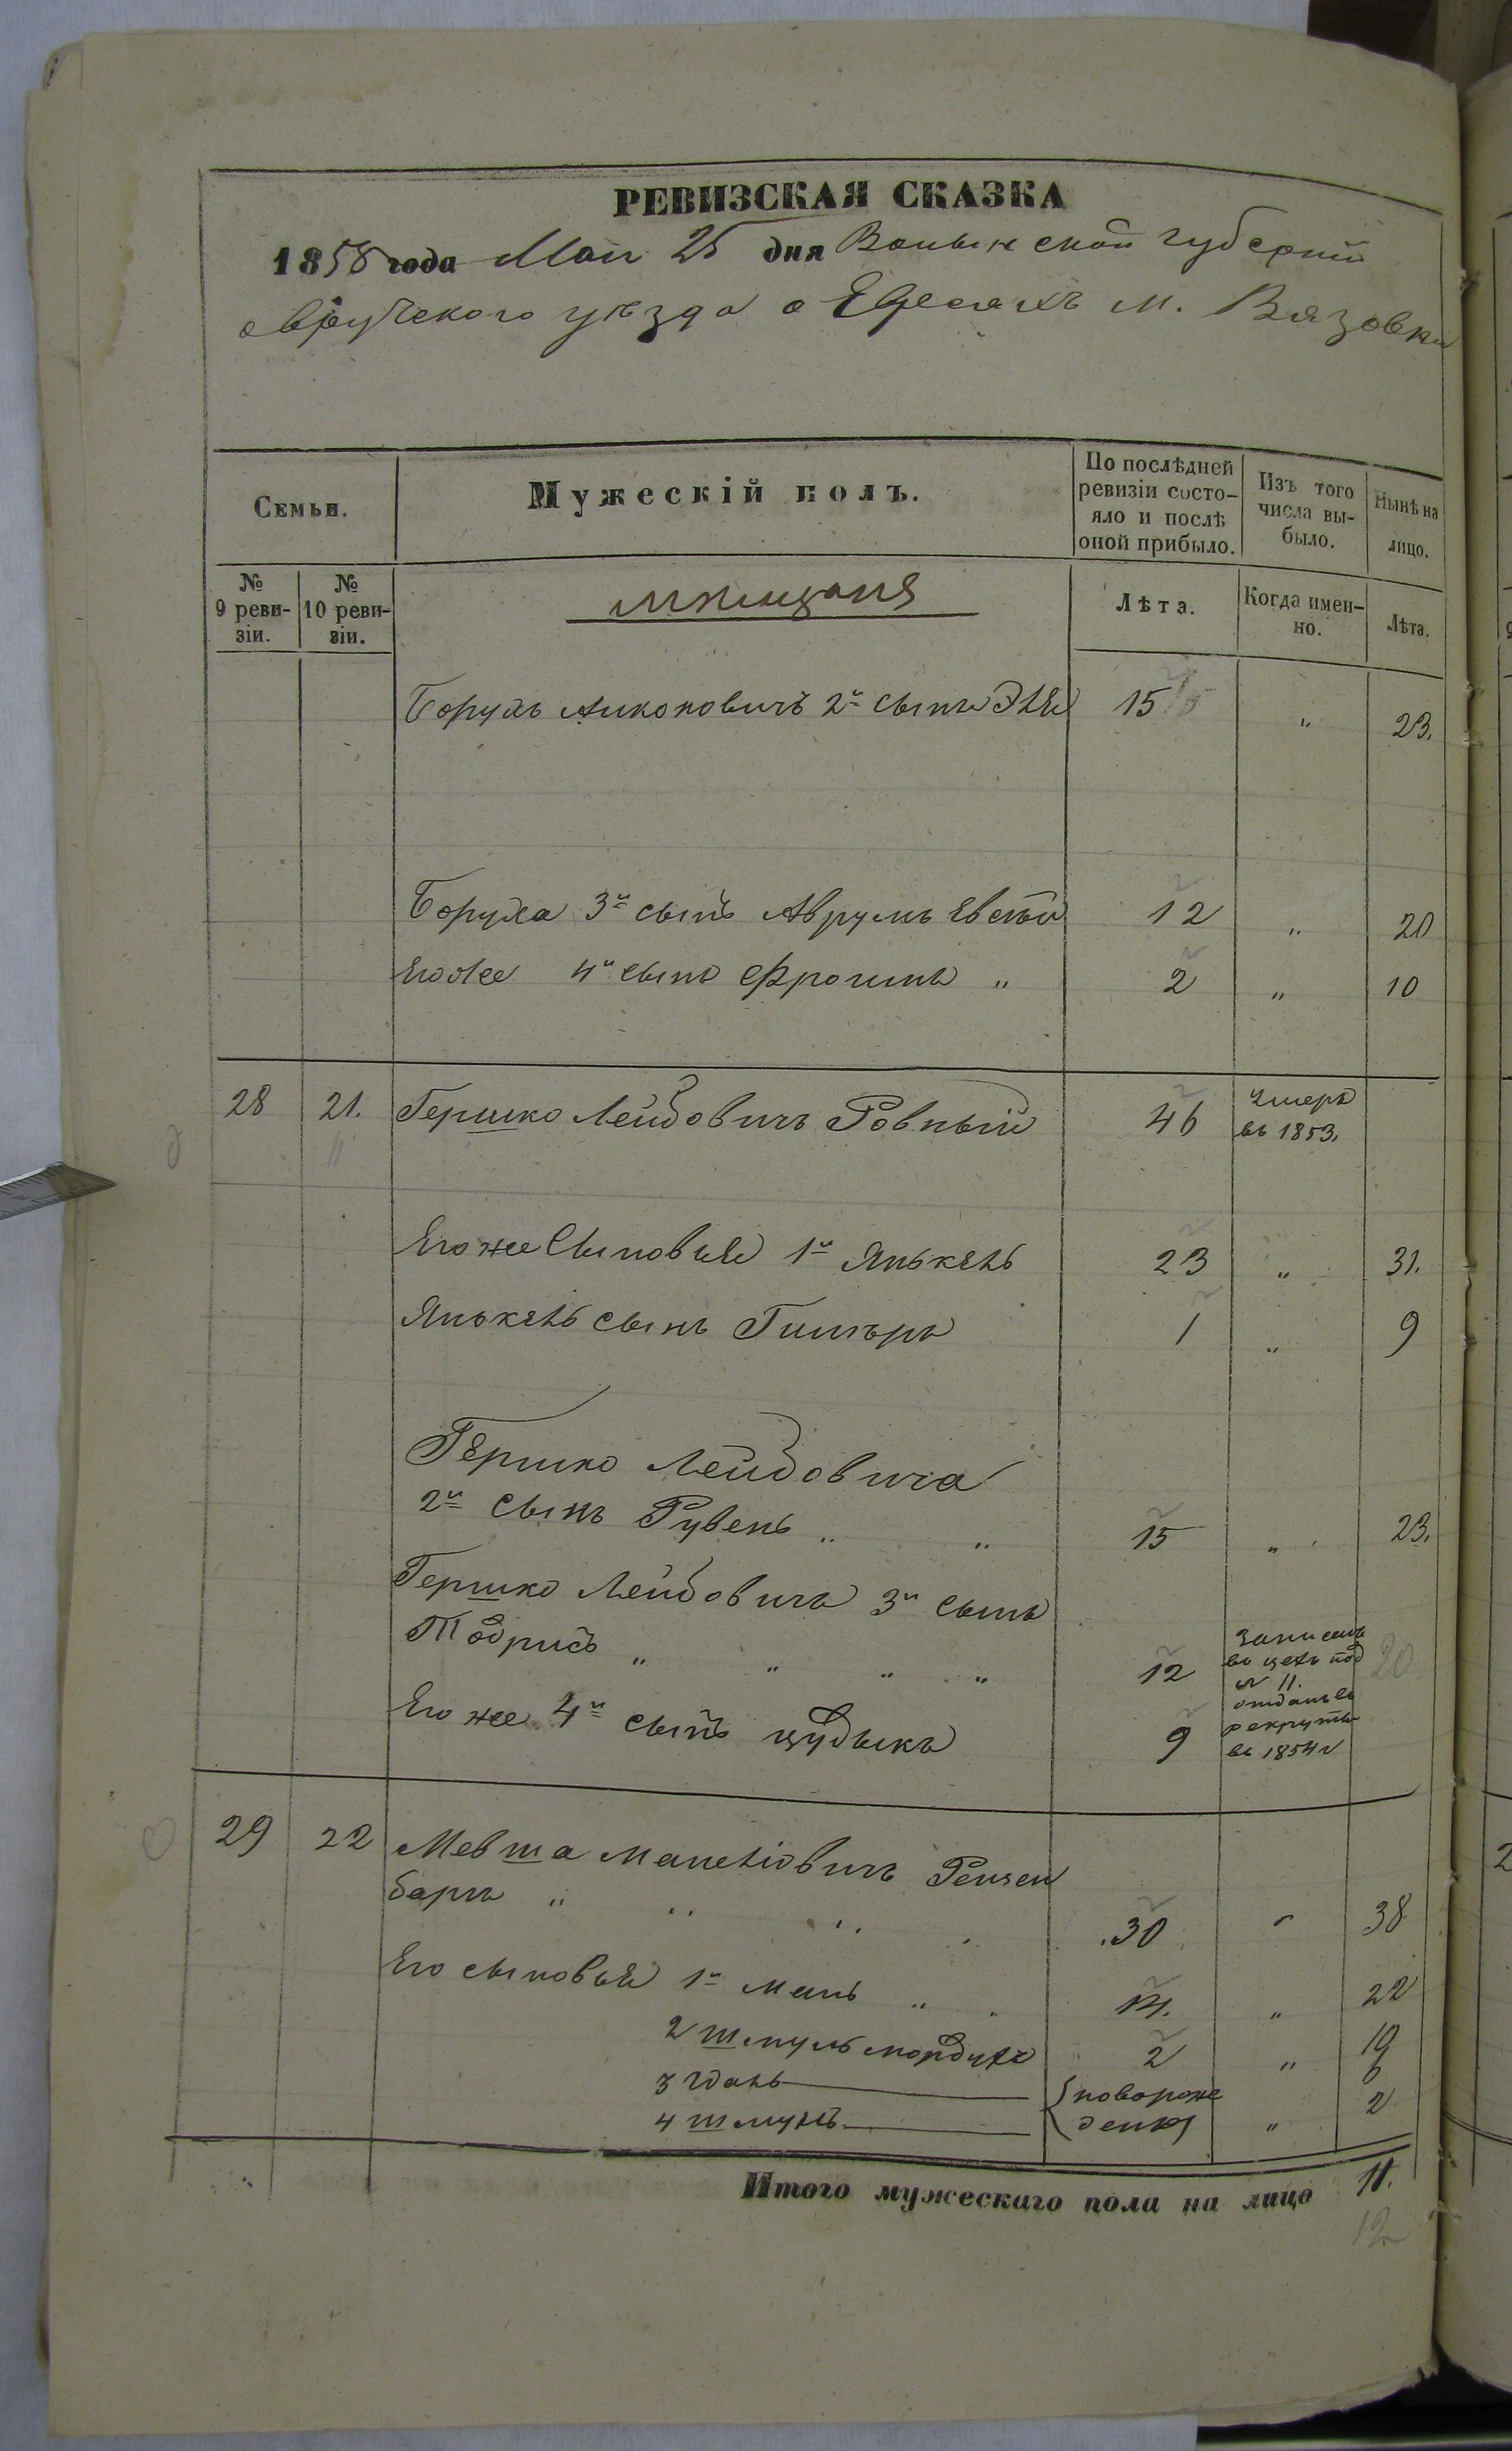 РЕВИЗСКАЯ СКАЗКА
1858 года Мая 25 дня Волынской губернии
овручского уѣзда о Евреяхъ м. Вязовки
Семьи.
Мужескій полъ.
По послѣдней ревизіи состо-
яло и послѣ
оной прибыло.
Изъ того
числа вы-
было.
Нынѣ на
лицо.
№
9 реви-
зіи.
№
10 реви-
зіи.
мѣщаня
Лѣта.
Когда имен-
но.
Лѣта.
Борухъ 2й сынъ 15 " 23.
Боруха 3й сынъ Аврумъ 12 " 20
Его же 4й сынъ Фроимъ " 2 " 10
28 21. Гершко Лейбовичъ Ровный 46 умеръ
въ 1853.
Его же Сыновья 1й Янькель 23 " 31.
Янькель сынъ Гимъръ 1 " 9
Гершко Лейбовича
2й Сынъ Рувенъ " " 15 " 23.
Гершко Лейбовича 3й сынъ
Тодрисъ " " " " 12 записанъ
въ цехъ под
№ 11. 20
Его же 4й сынъ цудыкъ 9 отданъ въ
рекруты
въ 1854 г
29 22 Мевша Манеліовичъ Рейзен
баргъ " " " 30 " 38
Его сыновья 1й мань " " 14. " 22
2 шмуль мордухъ 2 " 10
3 идань новорож 6
4 шмуль денъ " 2
Итого мужескаго пола на лицо 11.
12